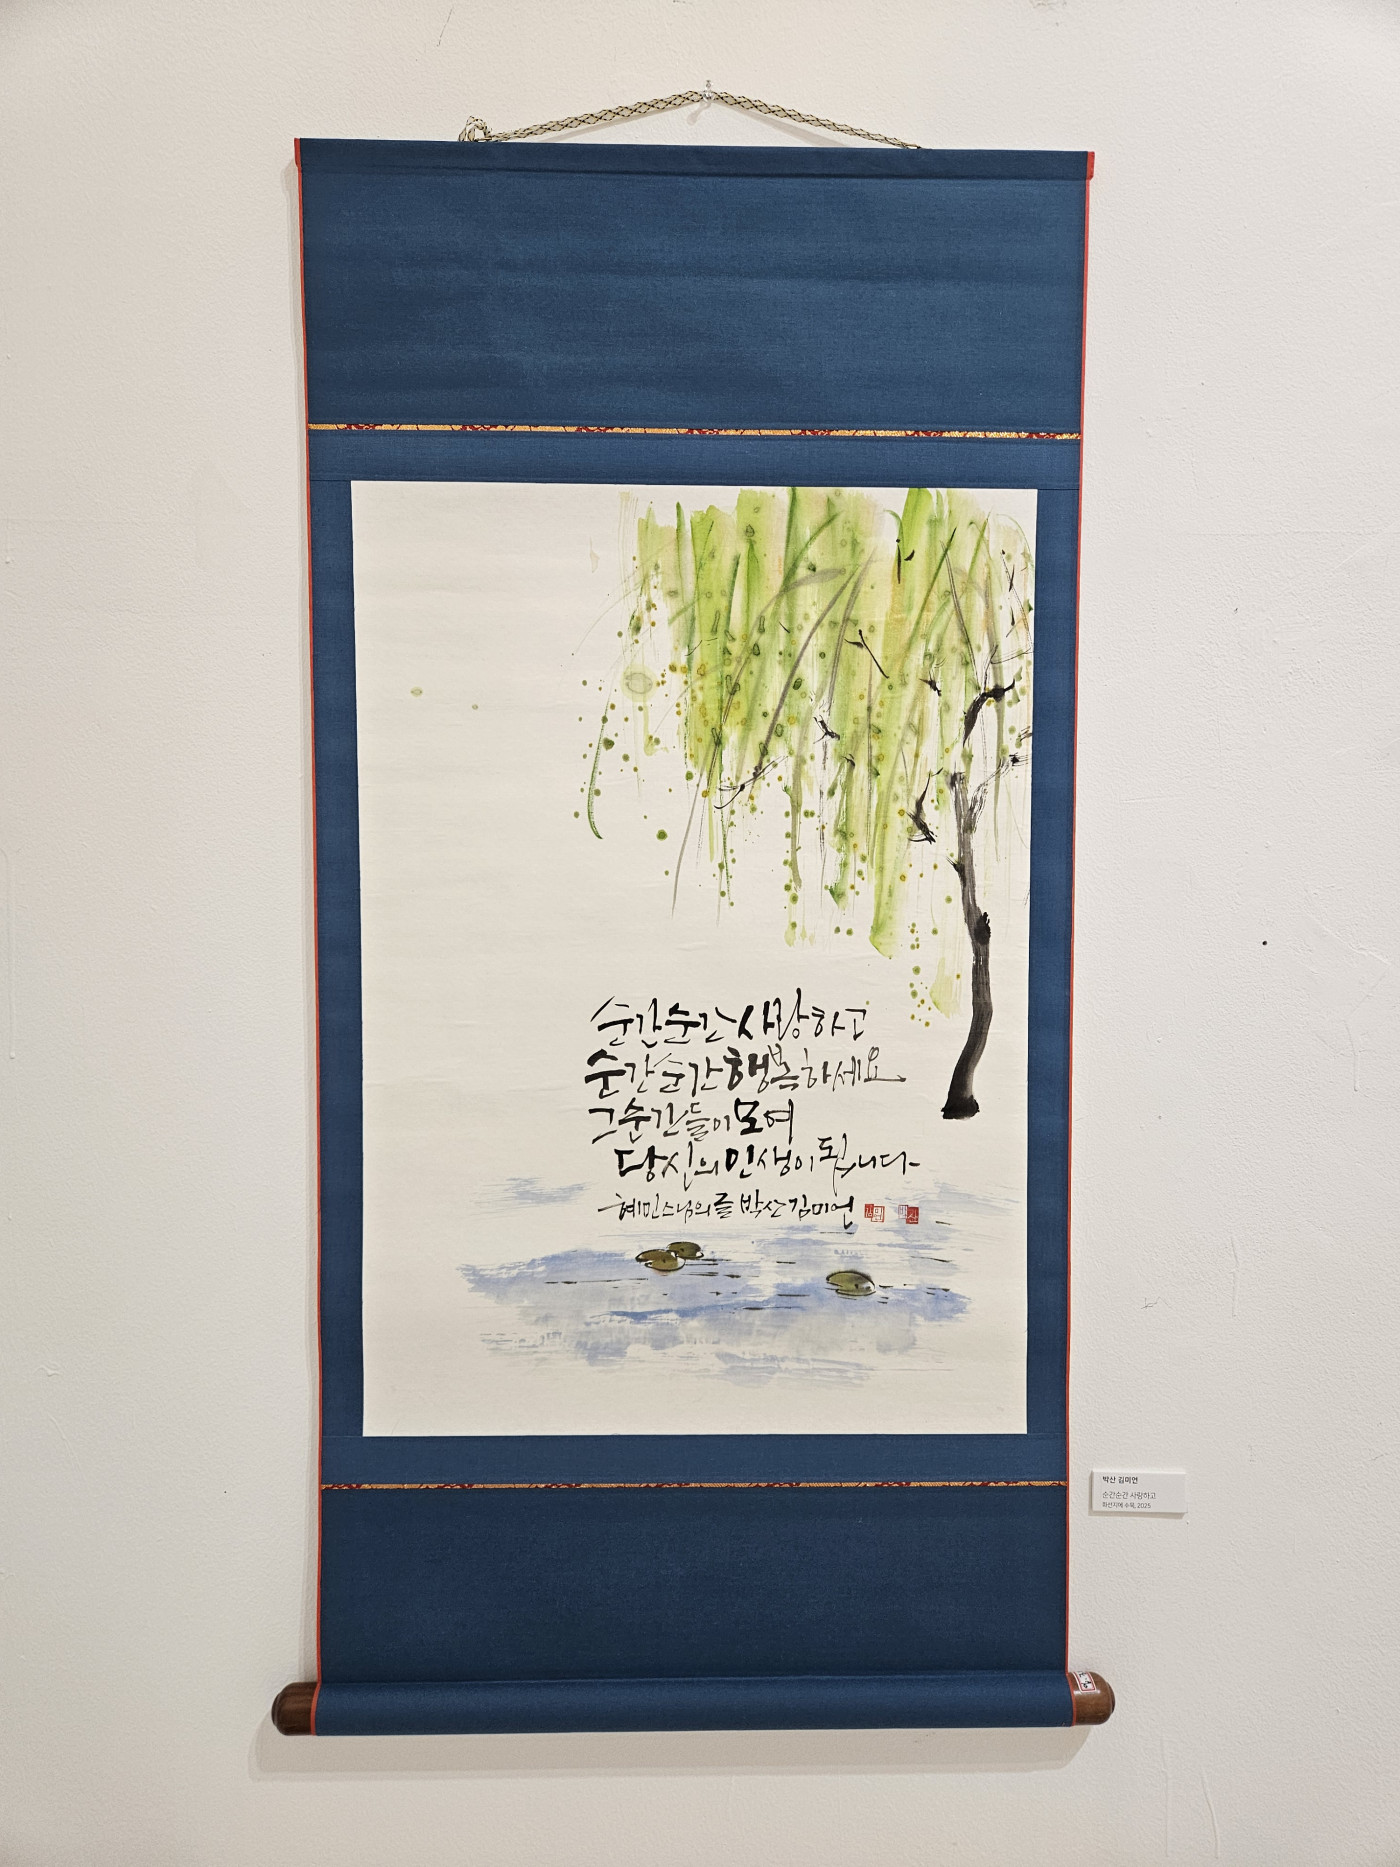 순간순간 사랑하고
순간순간 행복하세요
그 순간들이 모여
당신의 인생이 됩니다
혜민스님의 글 박산 김미연
박산 김미연
순간순간 사랑하고
화선지에 수묵, 2025